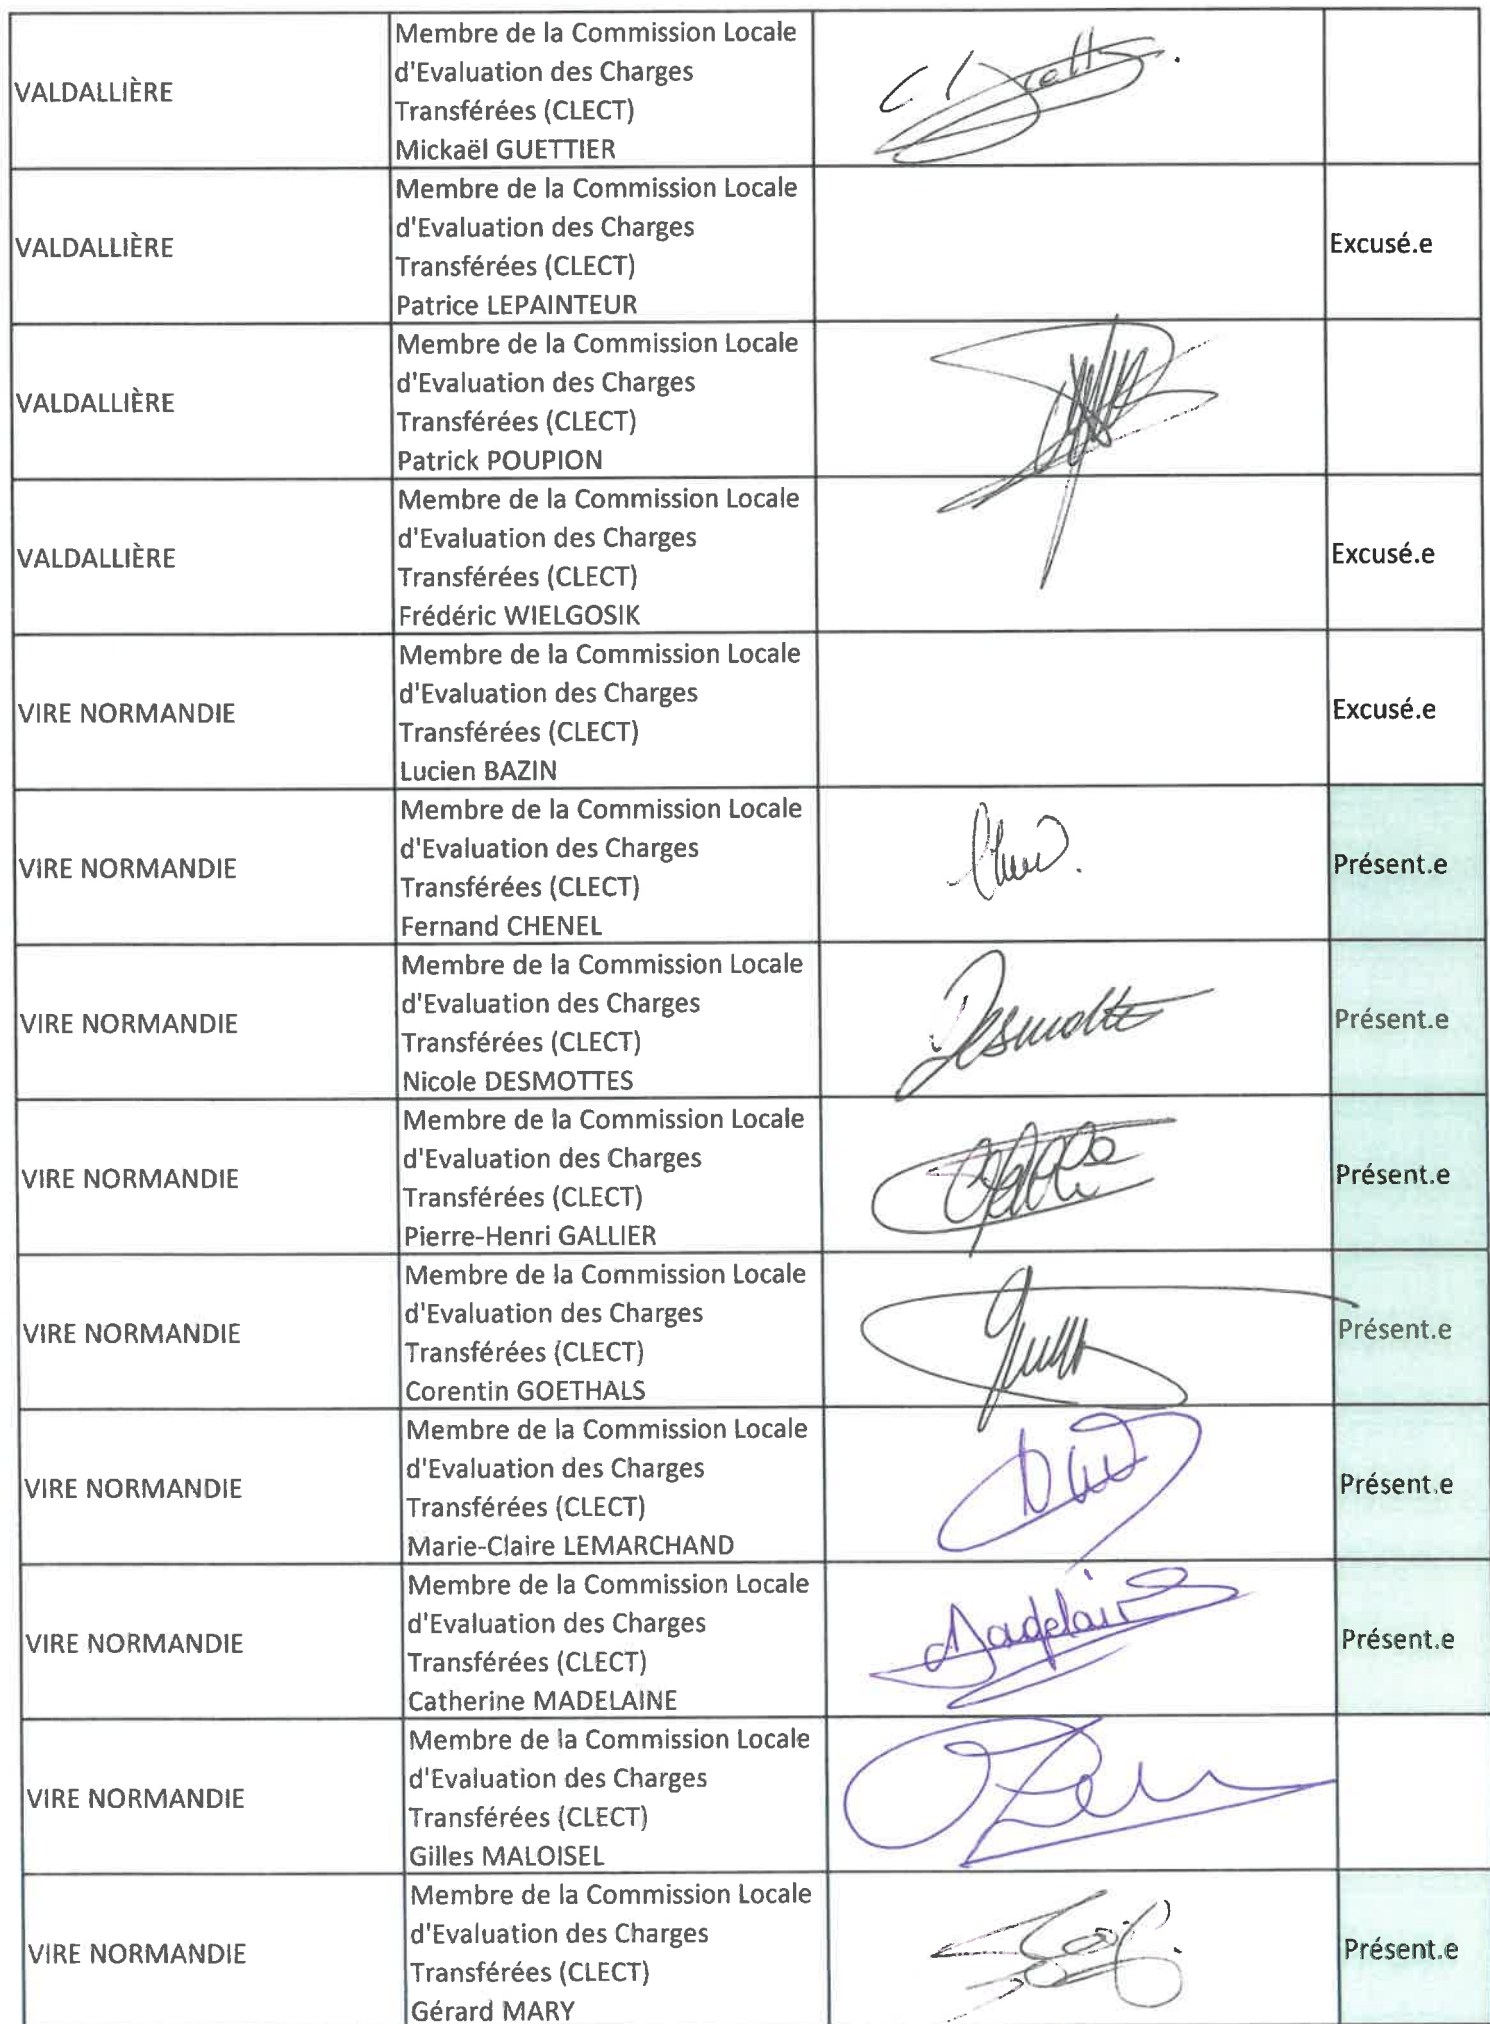 VALDALLIÈRE
Membre de la Commission Locale
d'Evaluation des Charges
Transférées (CLECT)
Mickaël GUETTIER
VALDALLIÈRE
Membre de la Commission Locale
d'Evaluation des Charges
Transférées (CLECT)
Patrice LEPAINTEUR
Excusé.e
VALDALLIÈRE
Membre de la Commission Locale
d'Evaluation des Charges
Transférées (CLECT)
Patrick POUPION
VALDALLIÈRE
Membre de la Commission Locale
d'Evaluation des Charges
Transférées (CLECT)
Frédéric WIELGOSIK
Excusé.e
VIRE NORMANDIE
Membre de la Commission Locale
d'Evaluation des Charges
Transférées (CLECT)
Lucien BAZIN
Excusé.e
VIRE NORMANDIE
Membre de la Commission Locale
d'Evaluation des Charges
Transférées (CLECT)
Fernand CHENEL
Présent.e
VIRE NORMANDIE
Membre de la Commission Locale
d'Evaluation des Charges
Transférées (CLECT)
Nicole DESMOTTES
Présent.e
VIRE NORMANDIE
Membre de la Commission Locale
d'Evaluation des Charges
Transférées (CLECT)
Pierre-Henri GALLIER
Présent.e
VIRE NORMANDIE
Membre de la Commission Locale
d'Evaluation des Charges
Transférées (CLECT)
Corentin GOETHALS
Présent.e
VIRE NORMANDIE
Membre de la Commission Locale
d'Evaluation des Charges
Transférées (CLECT)
Marie-Claire LEMARCHAND
Présent.e
VIRE NORMANDIE
Membre de la Commission Locale
d'Evaluation des Charges
Transférées (CLECT)
Catherine MADELAINE
Présent.e
VIRE NORMANDIE
Membre de la Commission Locale
d'Evaluation des Charges
Transférées (CLECT)
Gilles MALOISEL
VIRE NORMANDIE
Membre de la Commission Locale
d'Evaluation des Charges
Transférées (CLECT)
Gérard MARY
Présent.e